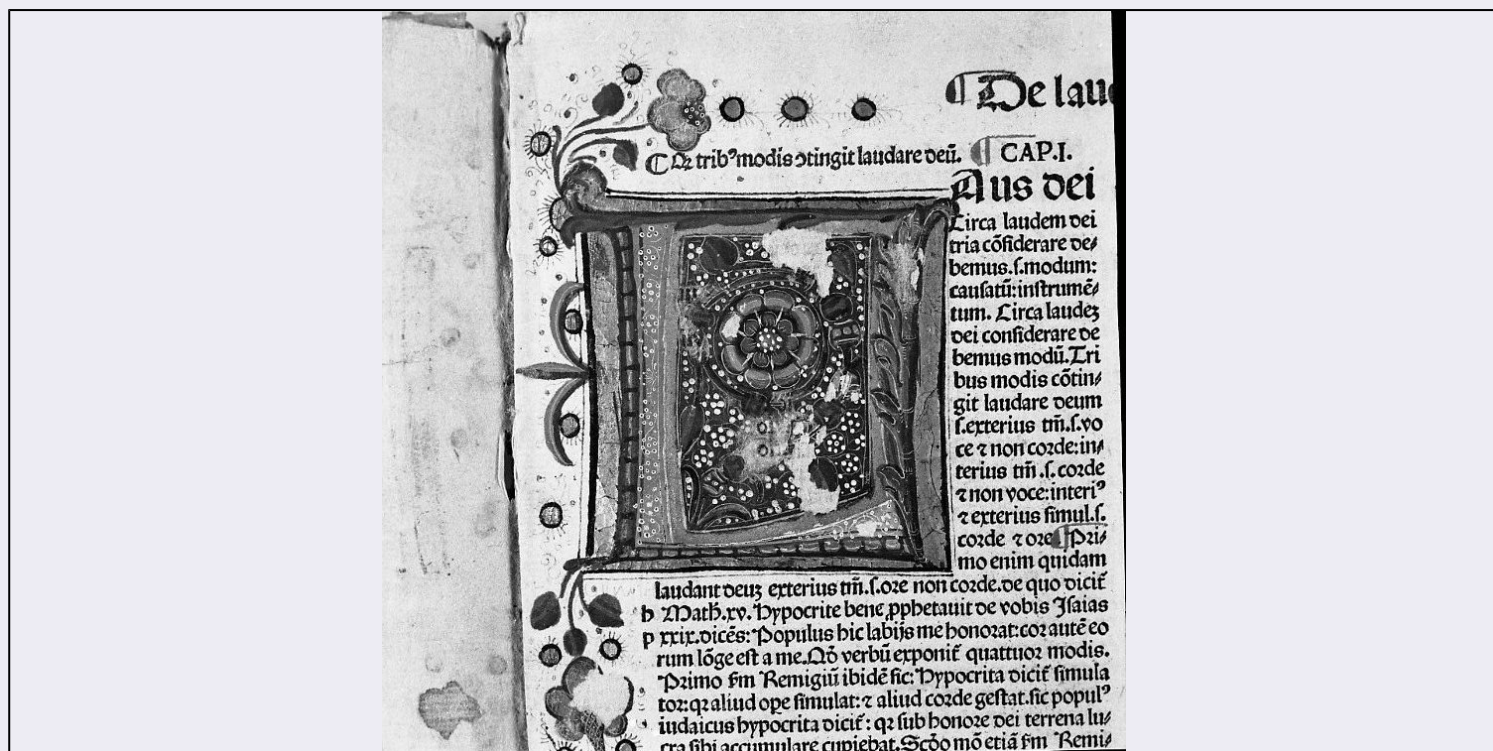 ¶ De lau
¶ Qꝛ tribꝰ modis ↄtingit laudare deū. ¶ CAP.I.
Aus dei
Circa laudem dei
tria cōſiderare de⸗
bemus.ſ.modum:
cauſatū:inſtrumē⸗
tum. Circa laudeꝫ
dei conſiderare de
bemus modū. Tri
bus modis cōtin⸗
git laudare deum
ſ.exterius tm̄.ſ.vo
ce ⁊ non corde:in⸗
terius tm̄.ſ.corde
⁊ non voce:interiꝰ
⁊ exterius ſimul.ſ.
corde ⁊ ore ¶ Pri⸗
mo enim quidam
laudant deuꝫ exterius tm̄.ſ.ore non corde.de quo dicit̄
b Math̄.xv. Hypocrite bene ꝓphetauit de vobis Iſaias
p xxix.dicēs: Populus hic labijs me honorat:cor autē eo
rum lōge eſt a me. Qd̄ verbū exponit̄ quattuor modis.
Primo ſm̄ Remigiū ibidē ſic: Hypocrita dicit̄ ſimula
tor:qꝛ aliud oꝑe ſimulat:⁊ aliud corde geſtat.ſic populꝰ
iudaicus hypocrita dicit̄: qꝛ ſub honore dei terrena lu⸗
cra ſibi accumulare cupiebat. Scd̄o mō etiā ſm̄ Remi⸗